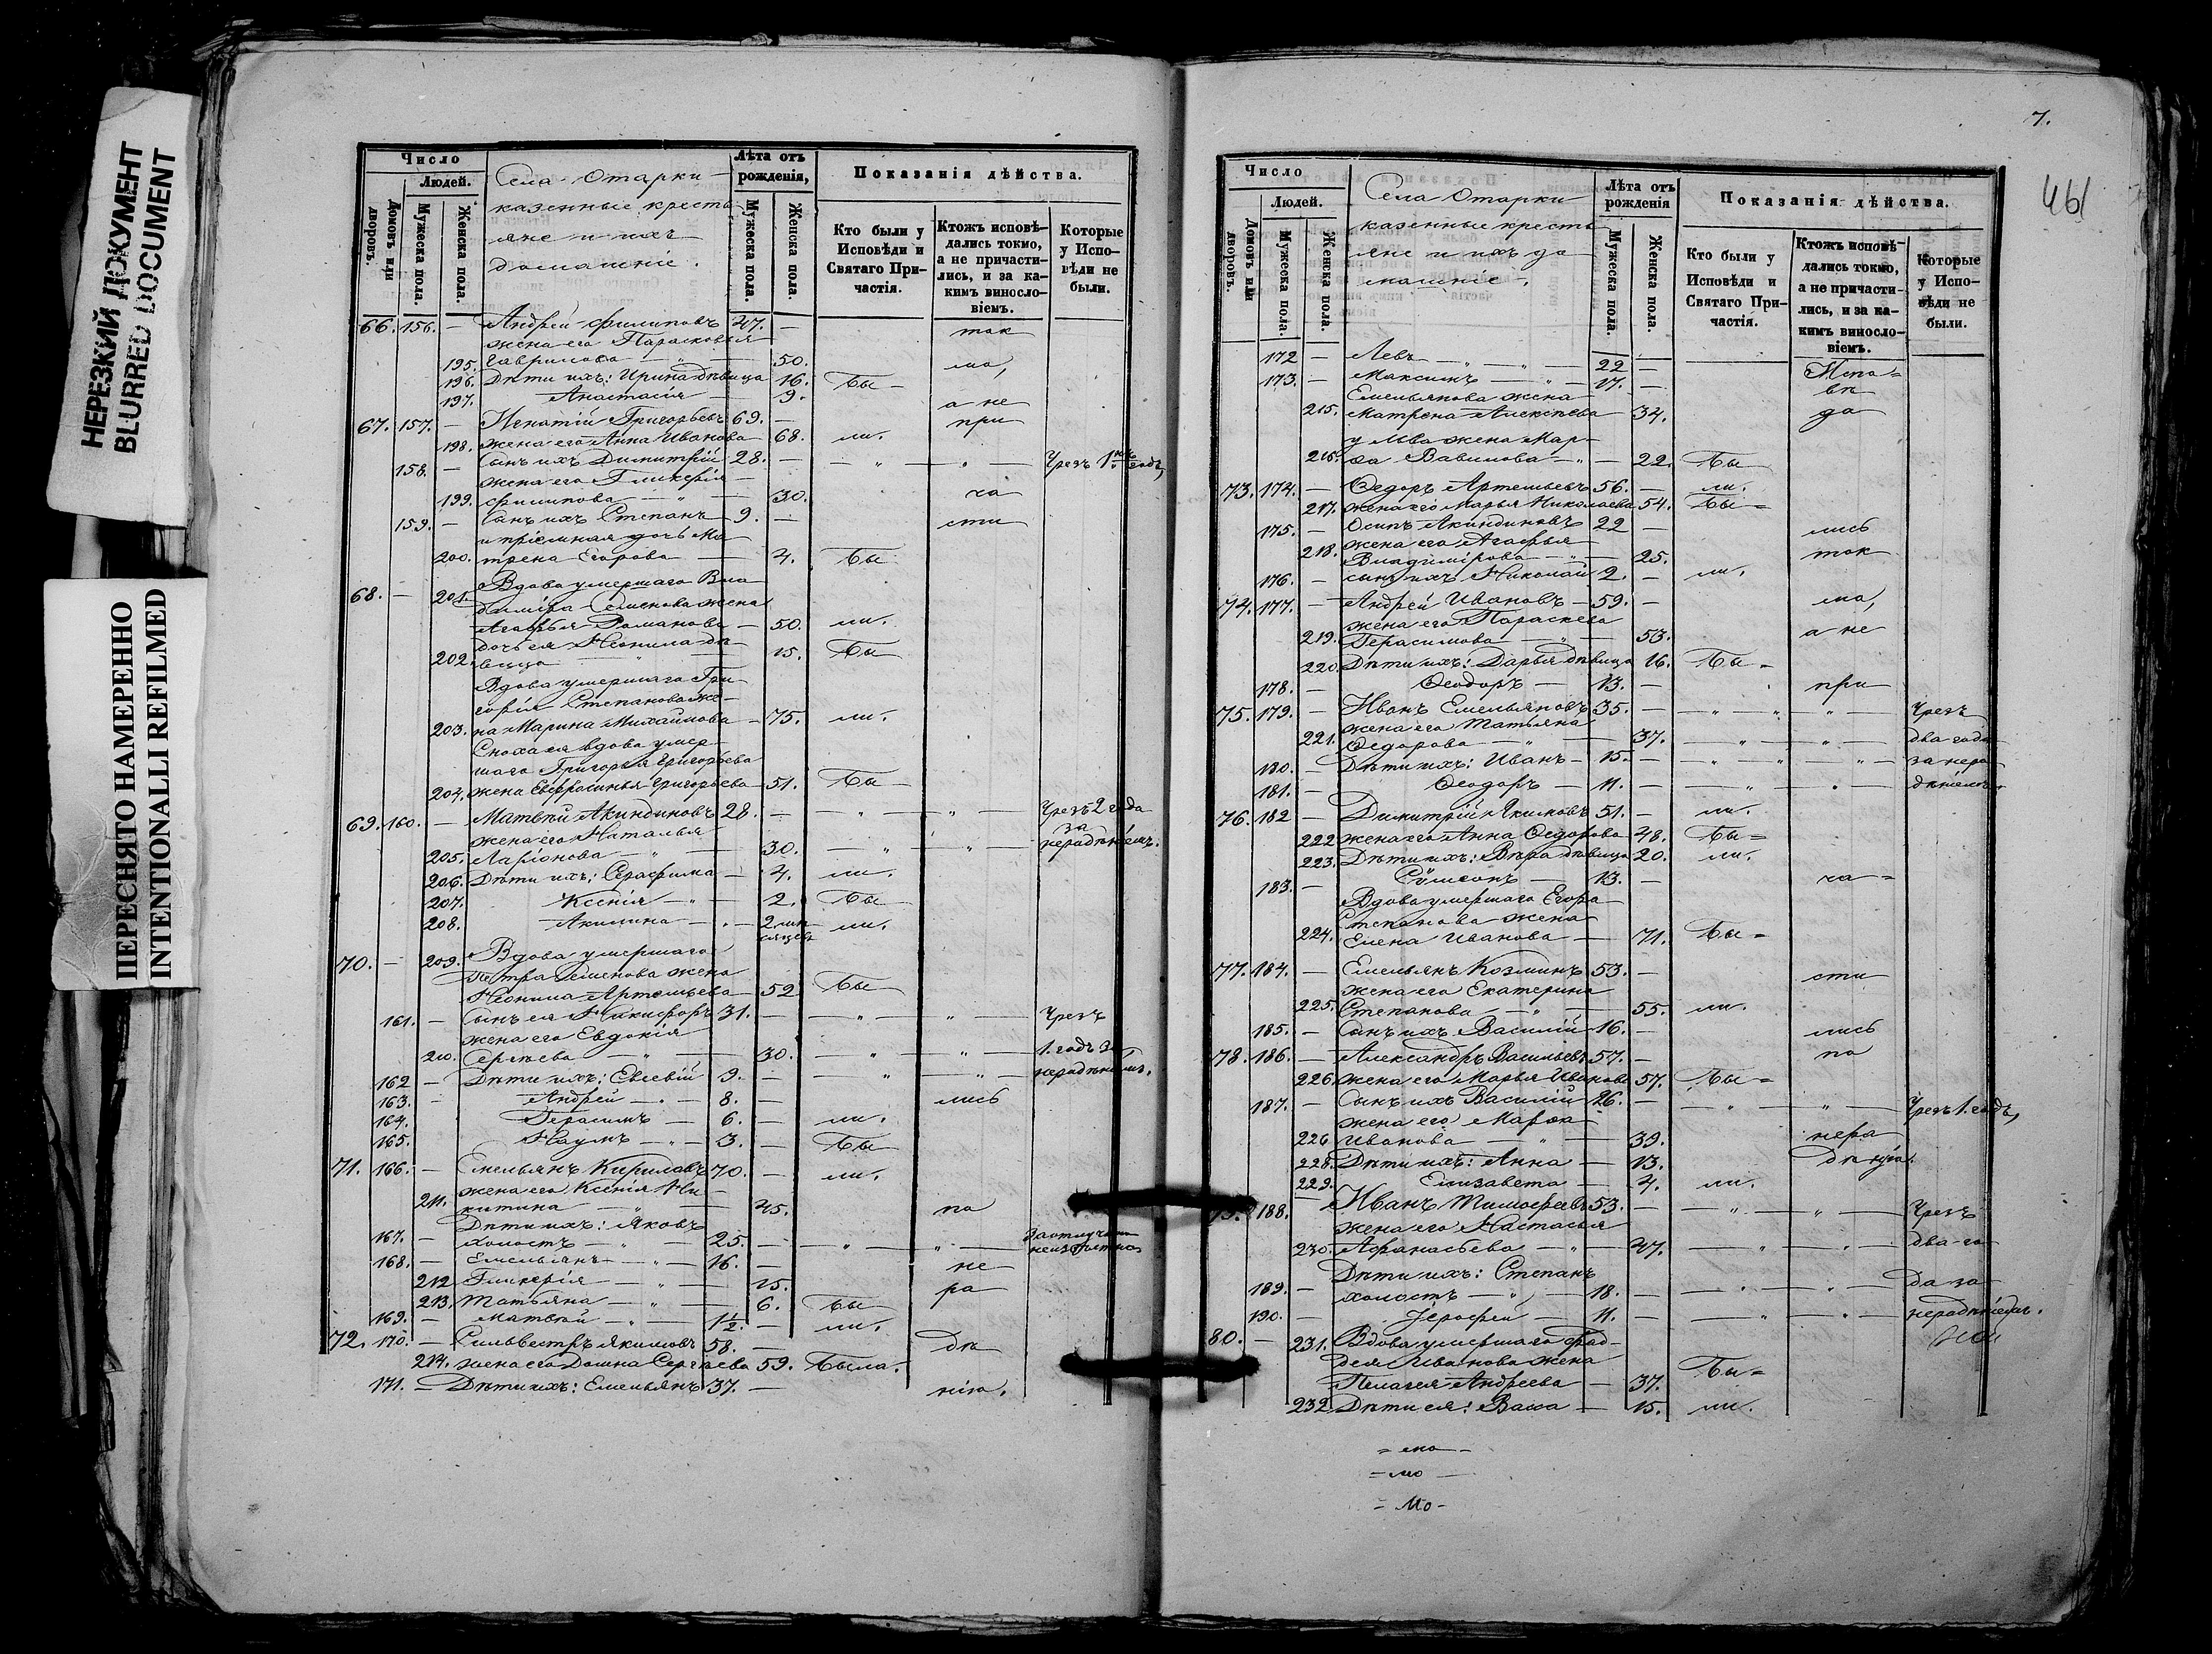 НЕРЕЗКИЙ ДОКУМЕНТ
BLURRED DOCUMENT
ПЕРЕСНЯТО НАМЕРЕННО
INTENTIONALLI REFILMED
Число
Людей.
Домовъ или дворовъ.
Мужеска пола.
Женска пола.
Села Отарки
казенные кресть
яне и ихъ
домашніе.
Лѣта отъ рожденія,
Мужеска пола.
Женска пола.
Показанія дѣйства.
Кто были у Исповѣди и Святаго Причастія.
Ктожъ исповѣдались токмо, а не причастились, и за какимъ винословіемъ.
Которые у Исповѣди не были.
66. 156. — Андрей Филиповъ 47. — ток
жена его Парасковья
195. Гаврилова — 50. мо,
196. Дѣти ихъ: Ирина дѣвица 16. Бы —
197. Анастасія — 9. а не
67. 157. — Игнатій Григорьевъ 69. — при
198. жена его Анна Иванова — 68. ли.
158. — Сынъ ихъ Димитрій 28. — Чрезъ 1 годъ,
жена его Гликерія —
199. Филипова — 30. ча
159. — Сынъ ихъ Степанъ 9. — сти
и пріемная дочь Ма
200. трена Егорова — 4. Бы
68. — 201. Вдова умершаго Вла
диміра Семенова жена
Агафья Романова — 50. ли.
дочь ея Неонила дѣ
202. вица 15. Бы
Вдова умершаго Гри
горія Степанова же
203. на Марина Михайлова — 75. ли.
Сноха ея вдова умер
шаго Григорья Григорьева
204. жена Евфросинья Григорьева 51. Бы —
69. 160. — Матвѣй Акиндиновъ 28. — Чрезъ 2 года
жена его Наталья за
205. Ларіонова — 30. — нерадѣніемъ.
206. Дѣти ихъ: Серафима — 4. ли.
207. Ксенія — 2. Бы
208. Акилина — 2 мѣ
сяцевъ ли.
70. — 209. Вдова умершаго
Петра Семенова жена
Неонила Артемьева 52 Бы
161. — Сынъ ея Никифоръ 31. — Чрезъ
жена его Евдокія
210. Сергѣева — 30. — 1. годъ за
162 — Дѣти ихъ: Евсевій 9. — нерадѣніемъ.
163. Андрей — 8. — лись
164. Герасимъ — 6. — ли.
165. Наумъ — 3. — Бы
71. 166. — Емельянъ Кириловъ 70. — ли.
жена его Ксенія Ни —
211. китина — 45. по
Дѣти ихъ: Яковъ
167. — холостъ — 25. —
168. — Емельянъ — 16. — не
212 Гликерія — 15. ра
213. Татьяна — 6. Бы
169. — Матвѣй — 1½. — ли.
72. 170. — Сильвестръ Якимовъ 58. — дѣ
214. жена его Домна Сергѣева 59. Была.
171. — Дѣти ихъ: Емельянъ 37. — нію.
7.
461
Число
Людей.
Домовъ или дворовъ.
Мужеска пола.
Женска пола.
Села Отарки
казенные кресть
яне и ихъ до
машніе.
Лѣта отъ рожденія
Мужеска пола.
Женска пола.
Показанія дѣйства.
Кто были у Исповѣди и Святаго Причастія.
Ктожъ исповѣдались токмо, а не причастились, и за какимъ винословіемъ.
Которые у Исповѣди не были.
172 — Левъ — 22 —
173. — Максимъ — 17. — Испо=
Емельянова жена вѣ
215. Матрена Алексѣева — 34. да
у Льва жена Мар-
216. ѳа Вавилова — 22. Бы
73. 174. — Ѳедоръ Артемьевъ 56. — ли.
217. жена его Марья Николаева 54. Бы =
175. — Осипъ Акиндиновъ 22 — лись
жена его Агафья
218. Владимірова — 25. ток
176. — сынъ ихъ Николай 2. — ли.
74. 177. — Андрей Ивановъ — 59. — мо,
жена его Параскева
219. Герасимова — 53. а не
220. Дѣти ихъ: Дарья дѣвица 16. Бы =
178. — Ѳеодоръ — 13. — при
75. 179. — Иванъ Емельяновъ 35. — Чрезъ
жена его Татьяна
221. Ѳедорова — 37. — два года
180. — Дѣти ихъ: Иванъ — 15. — за нера
181. — Ѳеодоръ — 11. — дѣніемъ.
76. 182 — Димитрій Акимовъ 51. — ли.
222 жена его Анна Ѳедорова 48. Бы =
223. Дѣти ихъ: Вѣра дѣвица 20. ли.
183. — Сѵмеонъ — 13. — ча =
Вдова умершаго Егора
Степанова жена
224. Елена Иванова — 71. Бы =
77. 184. — Емельянъ Козминъ 53. — сти
жена его Екатерина
225. Степанова — 55. ли.
185. — Сынъ ихъ Василій 16. — лись
78. 186. — Александръ Васильевъ 57. — по
226. жена его Марья Иванова 57. Бы =
187. — Сынъ ихъ Василій 26. — Чрезъ 1. годъ,
жена его Марѳа
226 Иванова — 39. нера
228. Дѣти ихъ: Анна — 13. дѣнію.
229. Елизавета — 4. ли.
79. 188. — Иванъ Тимофеевъ 53. — Чрезъ
жена его Настасья
230. Афанасьева — 47. — два го
Дѣти ихъ: Степанъ
189. — холостъ — 18. — да за
190. — Іерофей — 11. — нерадѣніемъ.
80. — 231. Вдова умершаго Фад-
дея Иванова жена
Пелагея Андреева — 37. Бы =
232 Дѣти ея: Васса — 15. ли.